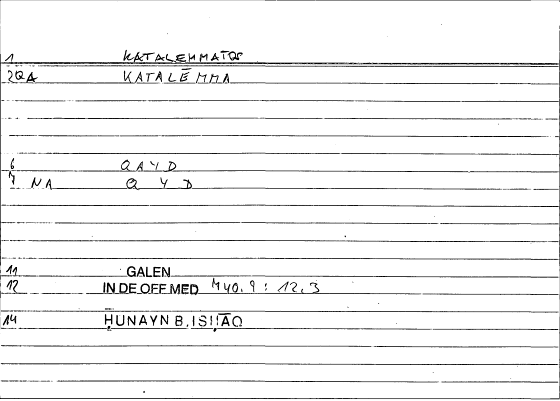 1 KATALEMMATOS
2QA KATALĒMMA
6 QAYD
7 NA Q Y D
11 GALEN
12 IN DE OFF MED M40.9 : 12.3
14 ḤUNAYN B. ISḤĀQ